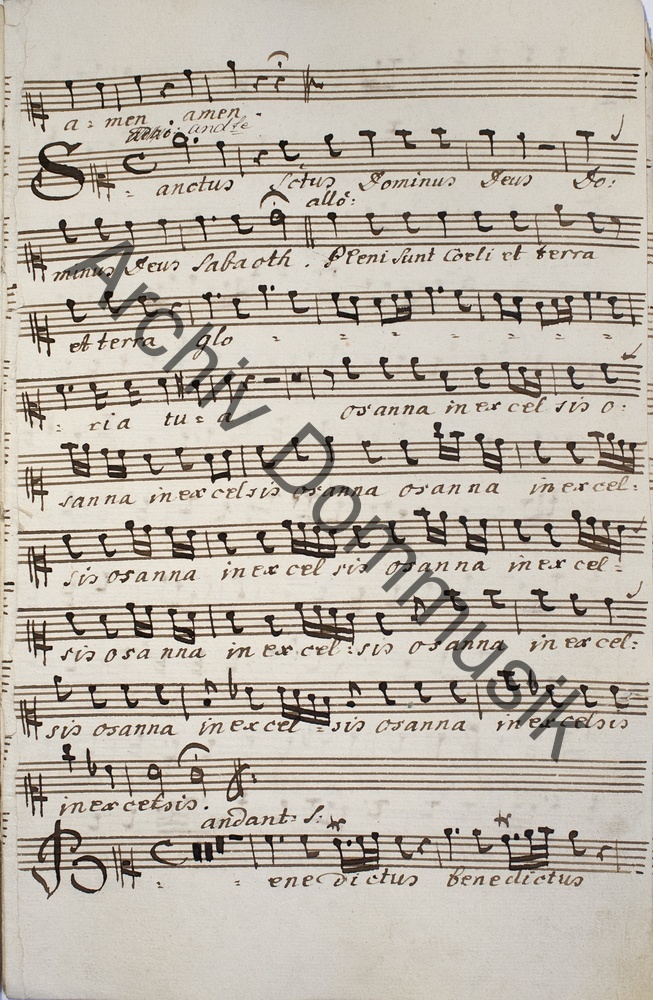 a = men amen.
Adio: and.te
Sanctus Sctus Dominus Deus Do:
allo:
minus Deus Sabaoth. Pleni sunt Coeli et terra
et terra glo - - - - - -
- ria tu = a osanna in excelsis o:
sanna in excelsis osanna osanna in excel:
sis osanna in excel sis osanna in excel =
sis osanna in excel = sis osanna in excel:
sis osanna in excel = sis osanna in excelsis
in excelsis.
andant: S:
Benedictus benedictus
Archiv Dommusik